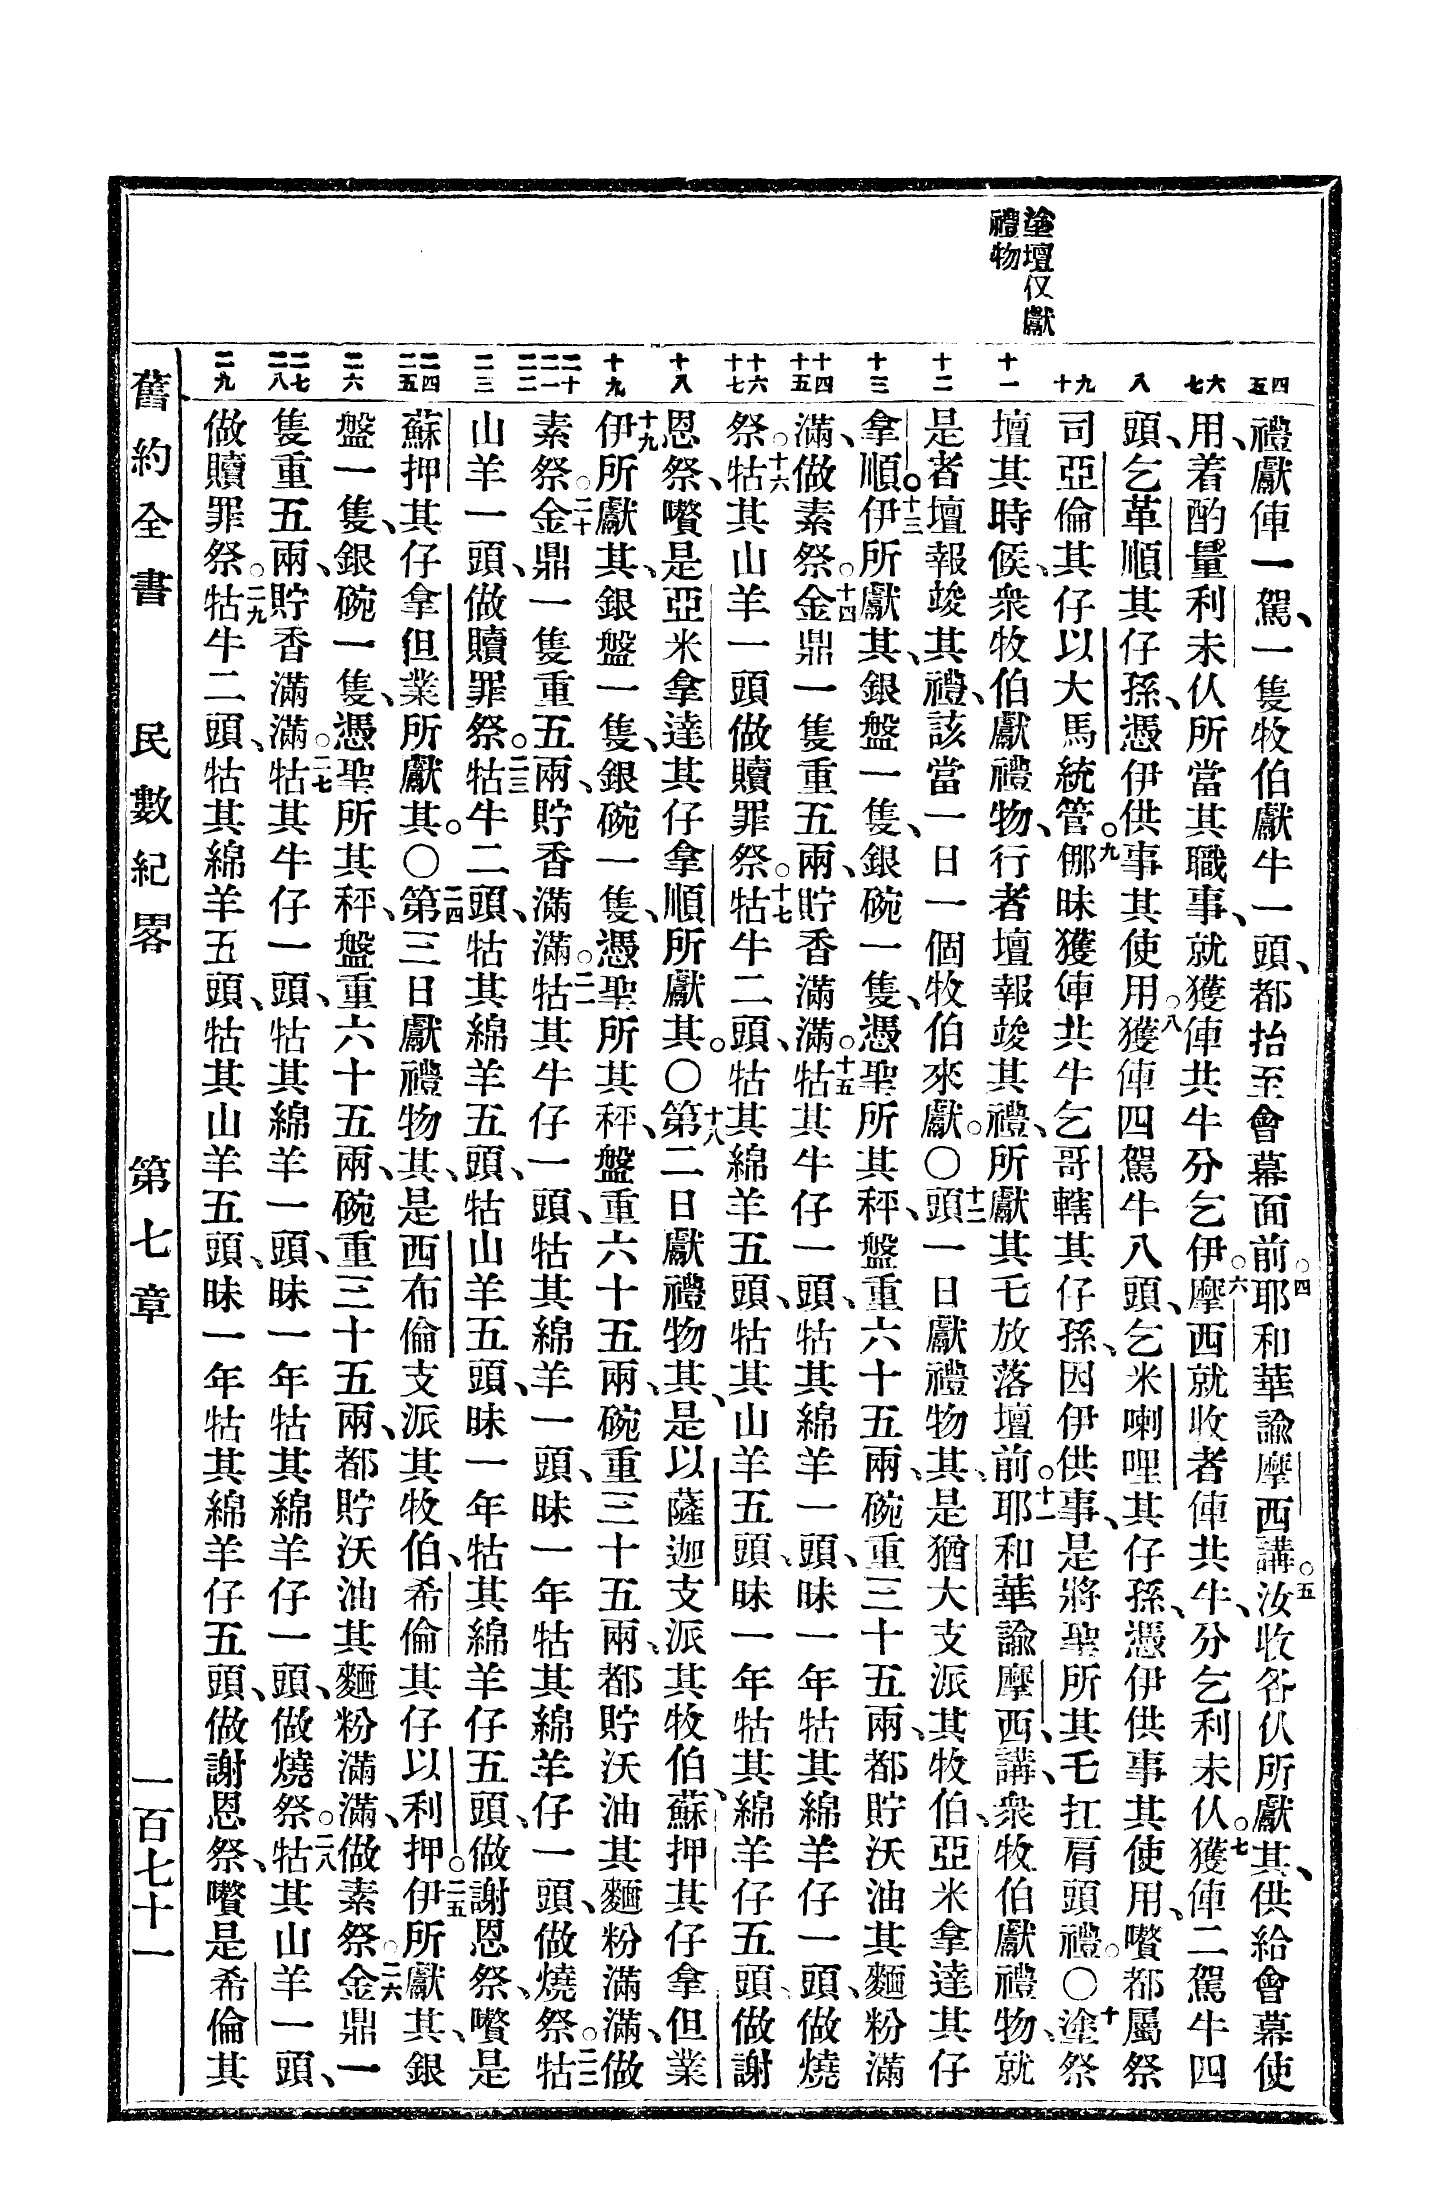 塗壇仅獻
禮物
四 五 六 七 八 九 十 十一 十二 十三 十四 十五 十六 十七 十八 十九 二十 二一 二二 二三 二四 二五 二六 二七 二八 二九
禮獻俥一駕、一隻牧伯獻牛一頭、都抬至會幕面前。四耶和華諭摩西講。五汝收各仈所獻其、供給會幕使
用、着酌量利未仈所當其職事、就獲俥共牛分乞伊。六摩西就收者俥共牛、分乞利未仈。七獲俥二駕牛四
頭、乞革順其仔孫、憑伊供事其使用。八獲俥四駕牛八頭、乞米喇哩其仔孫、憑伊供事其使用、囋都屬祭
司亞倫其仔以大馬統管。九倻昧獲俥共牛乞哥轄其仔孫、因伊供事、是將聖所其乇扛肩頭禮。〇十塗祭
壇其時候、衆牧伯獻禮物、行者壇報竣其禮、所獻其乇放落壇前。十一耶和華諭摩西、講、衆牧伯獻禮物、就
是者壇報竣其禮、該當一日一個牧伯來獻。〇十二頭一日獻禮物其、是猶大支派其牧伯、亞米拿達其仔
拿順。十三伊所獻其、銀盤一隻、銀碗一隻、憑聖所其秤、盤重六十五兩、碗重三十五兩、都貯沃油其麵粉滿
滿、做素祭。十四金鼎一隻重五兩、貯香滿滿。十五牯其牛仔一頭、牯其綿羊一頭、昧一年牯其綿羊仔一頭、做燒
祭。十六牯其山羊一頭做贖罪祭。十七牯牛二頭、牯其綿羊五頭、牯其山羊五頭、昧一年牯其綿羊仔五頭、做謝
恩祭、囋是亞米拿達其仔拿順所獻其。〇十八第二日獻禮物其、是以薩迦支派其牧伯、蘇押其仔拿但業
十九伊所獻其、銀盤一隻、銀碗一隻、憑聖所其秤、盤重六十五兩、碗重三十五兩、都貯沃油其麵粉滿滿、做
素祭。二十金鼎一隻重五兩、貯香滿滿。二一牯其牛仔一頭、牯其綿羊一頭、昧一年牯其綿羊仔一頭、做燒祭。二二牯
山羊一頭、做贖罪祭。二三牯牛二頭、牯其綿羊五頭、牯山羊五頭、昧一年牯其綿羊仔五頭、做謝恩祭、囋是
蘇押其仔拿但業所獻其。〇二四第三日獻禮物其、是西布倫支派其牧伯、希倫其仔以利押。二五伊所獻其、銀
盤一隻、銀碗一隻、憑聖所其秤、盤重六十五兩、碗重三十五兩、都貯沃油其麵粉滿滿、做素祭。二六金鼎一
隻重五兩、貯香滿滿。二七牯其牛仔一頭、牯其綿羊一頭、昧一年牯其綿羊仔一頭、做燒祭。二八牯其山羊一頭、
做贖罪祭。二九牯牛二頭、牯其綿羊五頭、牯其山羊五頭、昧一年牯其綿羊仔五頭、做謝恩祭、囋是希倫其
舊約全書 民數紀畧 第七章 一百七十一